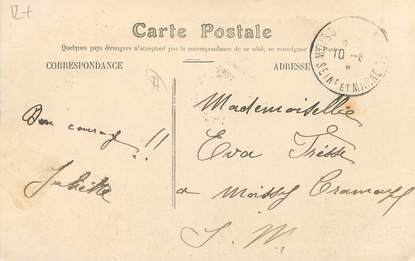 12+
Carte Postale
Quelques pays étrangers n'acceptent pas la correspondance de ce côté, se renseigner
CORRESPONDANCE
ADRESSE
SEINE ET MARNE
Bon courage !!
Juliette
Mademoiselle
Eva Tresse
a Moissy Cramayel
S. M